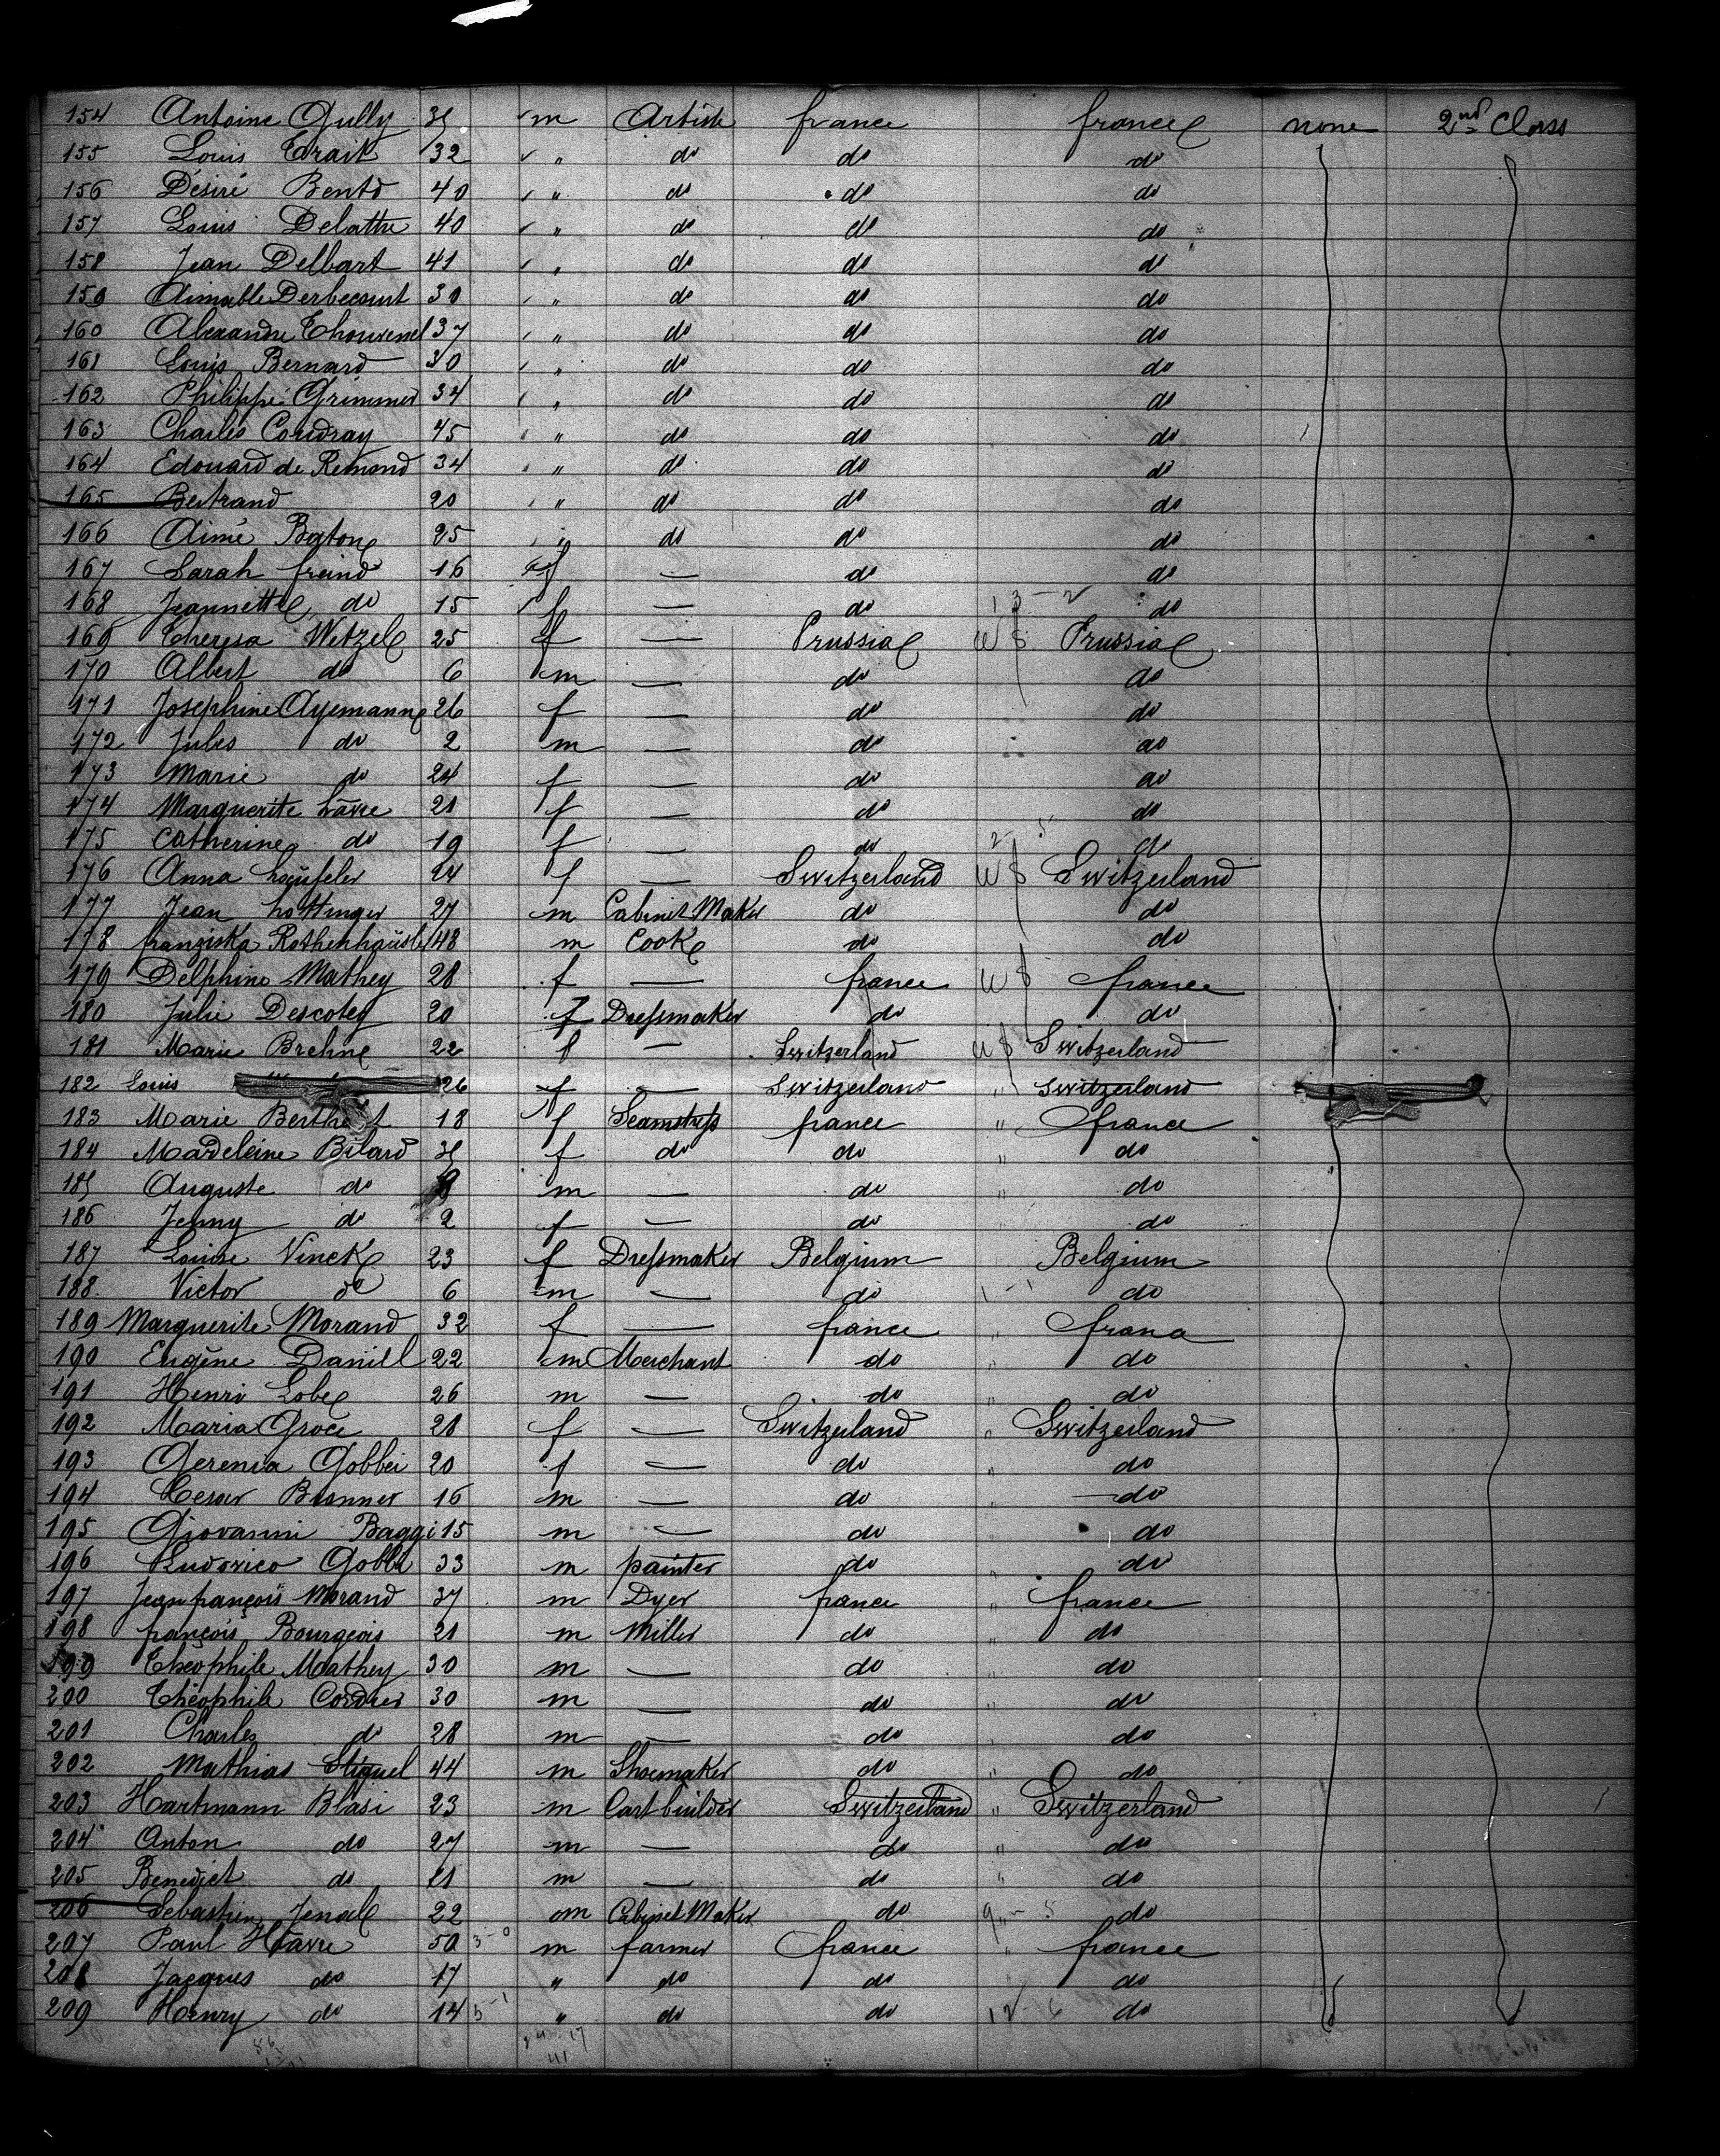 154 Antoine Gully 35 m Artiste france france none 2nd Class
155 Louis Trait 32 " do do do
156 Désiré Bento 40 " do do do
157 Louis Delattre 40 " do do do
158 Jean Delbart 41 " do do do
159 Aimable Derbecourt 30 " do do do
160 Alexandre Thouvenel 37 " do do do
161 Louis Bernard 30 " do do do
162 Philippe Grimmer 34 " do do do
163 Charles Coudray 45 " do do do
164 Edouard de Remond 34 " do do do
165 Bertrand 20 " do do do
166 Aimé Baton 25 " do do do
167 Sarah freind 16 f — do do
168 Jeannette do 15 f — do do
169 Theresa Wetzel 25 f — Prussia Prussia
170 Albert do 6 m — do do
171 Josephine Ayemann 26 f — do do
172 Jules do 2 m — do do
173 Marie do 24 f — do do
174 Marguerite havre 21 f — do do
175 Catherine do 19 f — do do
176 Anna 24 f — Switzerland Switzerland
177 Jean hottinger 27 m Cabinet Maker do do
178 franziska Rothenhäusler 48 m Cook do do
179 Delphine Mathey 28 f — france france
180 Julie Descotes 20 f Dressmaker do do
181 Marie Brehne 22 f — Switzerland Switzerland
182 Louis 26 f — Switzerland " Switzerland
183 Marie 18 f Seamstress france " france
184 Madeleine Bilard 35 f do do " do
185 Auguste do m — do " do
186 Jenny do 2 f — do do
187 Louise Vinck 23 f Dressmaker Belgium Belgium
188 Victor do 6 m — do do
189 Marguerite Morand 32 f — france " france
190 Eugène Daniel 22 m Merchant do " do
191 Henri Lobe 26 m — do " do
192 Maria Groce 28 f — Switzerland " Switzerland
193 Gerenia Gobbi 20 f — do " do
194 Cesar Bronner 16 m — do do
195 Giovanni Baggi 15 m — do " do
196 Ludovico Gobbi 33 m painter do " do
197 Jean françois Morand 37 m Dyer france " france
198 françois Bourgeois 21 m Miller do " do
199 Théophile Mathey 30 m — do " do
200 Théophile Cordier 30 m — do " do
201 Charles do 28 m — do do
202 Mathias Stiguel 44 m Shoemaker do " do
203 Hartmann Blasi 23 m Cart builder Switzerland " Switzerland
204 Anton do 27 m — do " do
205 Benedict do 21 m — do " do
206 Sebastien Jenal 22 m Cabinet Maker do do
207 Paul Havre 50 m farmer france " france
208 Jacques do 17 " do do do
209 Henry do 14 " do do do